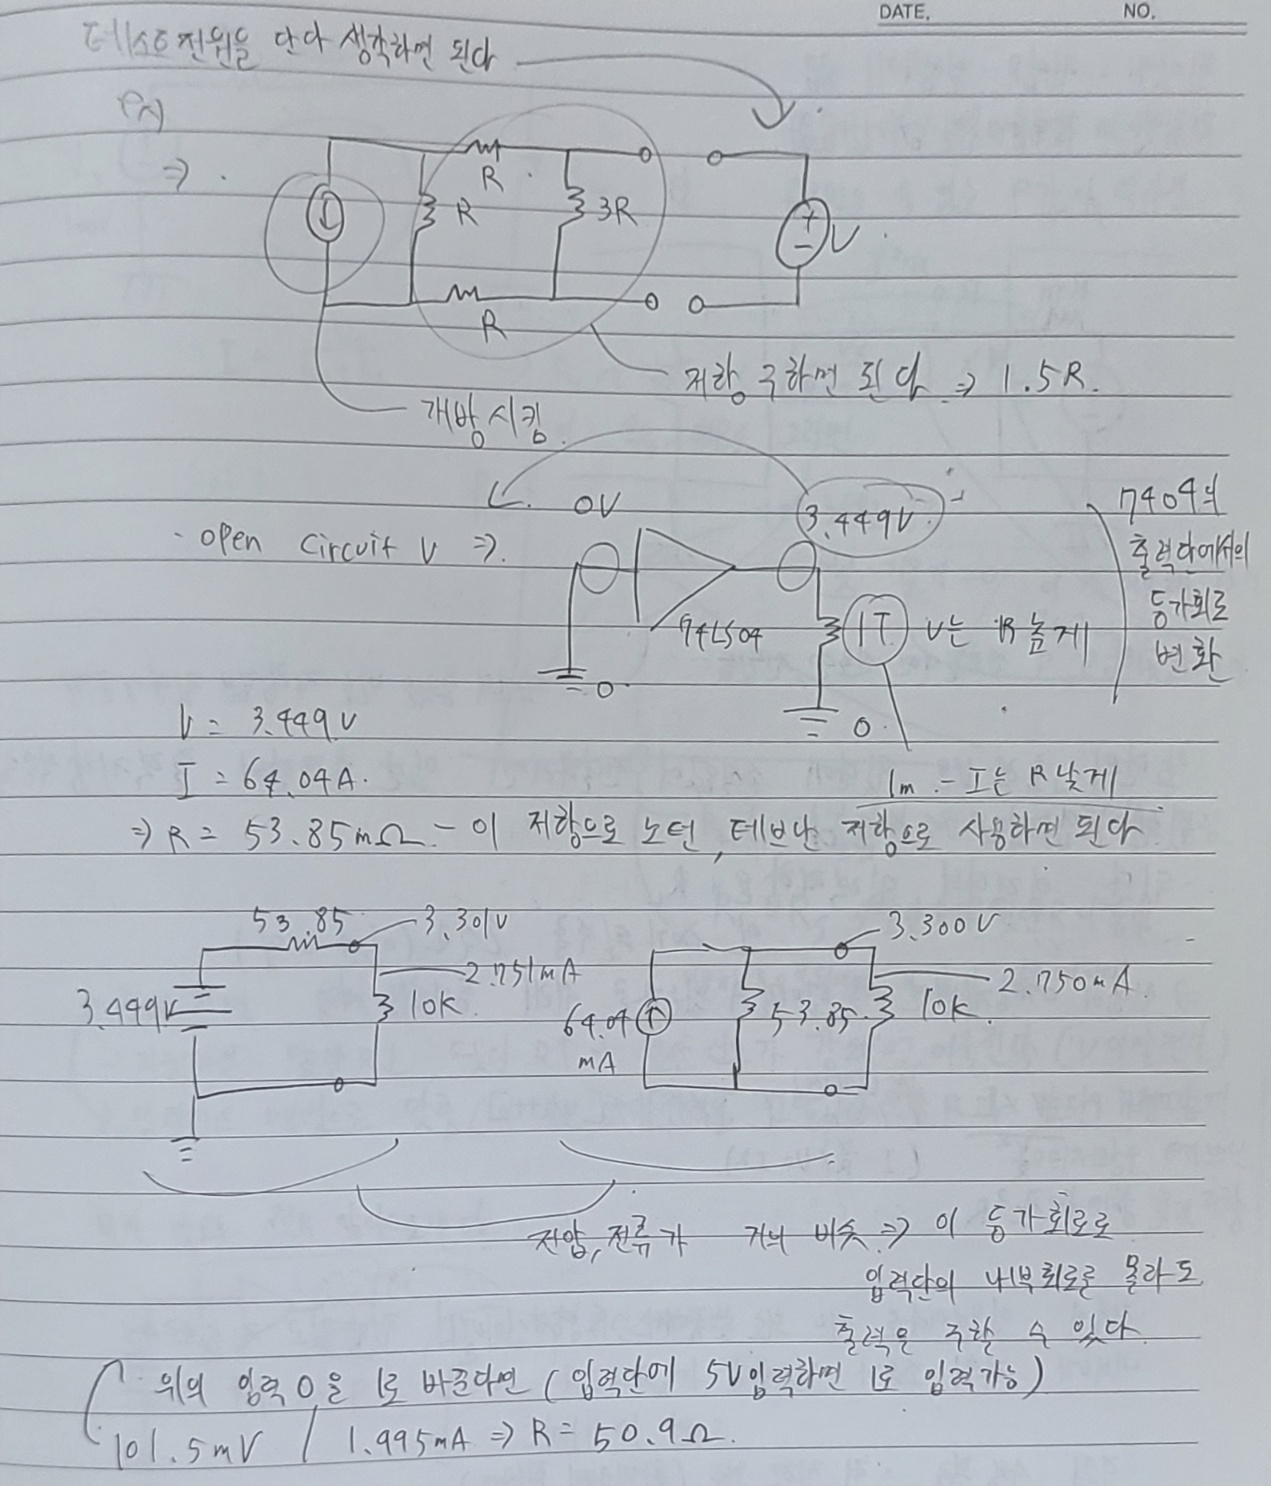 DATE. NO.
테스트 전원을 단다 생각하면 된다
ex)
⇒
R
R
3R
R
+
-
V
저항 구하면 된다 ⇒ 1.5R.
개방시킴
0V
3.449V
7404의
출력단에서의
등가회로
변환
open circuit V ⇒
74LS04
1T
V는 R 높게
0
0
V = 3.449V
I = 64.04A.
1m - I는 R 낮게
⇒ R = 53.85mΩ - 이 저항으로 노턴, 테브난 저항으로 사용하면 된다
53.85
3.301V
3.300V
3.449V
2.751mA
10K
64.04
mA
53.85
10K
2.750mA
전압, 전류가 거의 비슷 ⇒ 이 등가회로로
입력단의 내부회로를 몰라도
출력은 구할 수 있다
위의 입력 0을 1로 바꾼다면 (입력단에 5V입력하면 1로 입력가능)
101.5mV / 1.995mA ⇒ R = 50.9Ω.